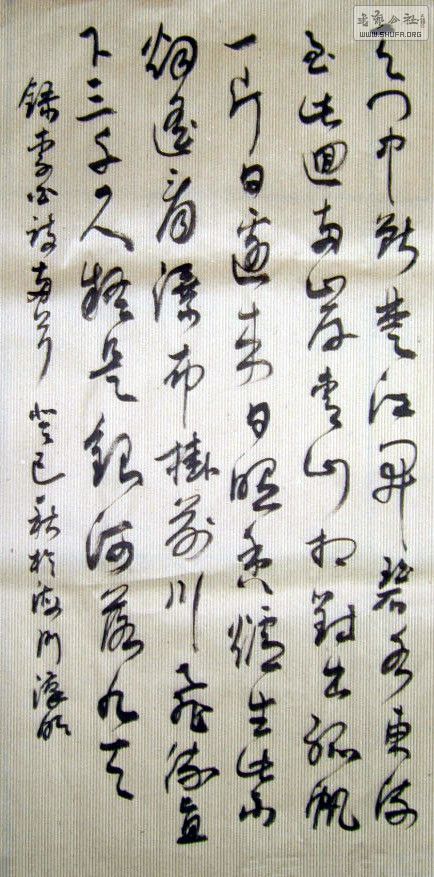 天门中斷楚江開碧水東流
至此迴兩岸青山相對出孤帆
一片日邊來日照香爐生紫
烟遙看瀑布掛前川飛流直
下三千尺疑是銀河落九天
錄李白詩兩首 癸巳秋於
书法公社
WWW.SHUFA.ORG